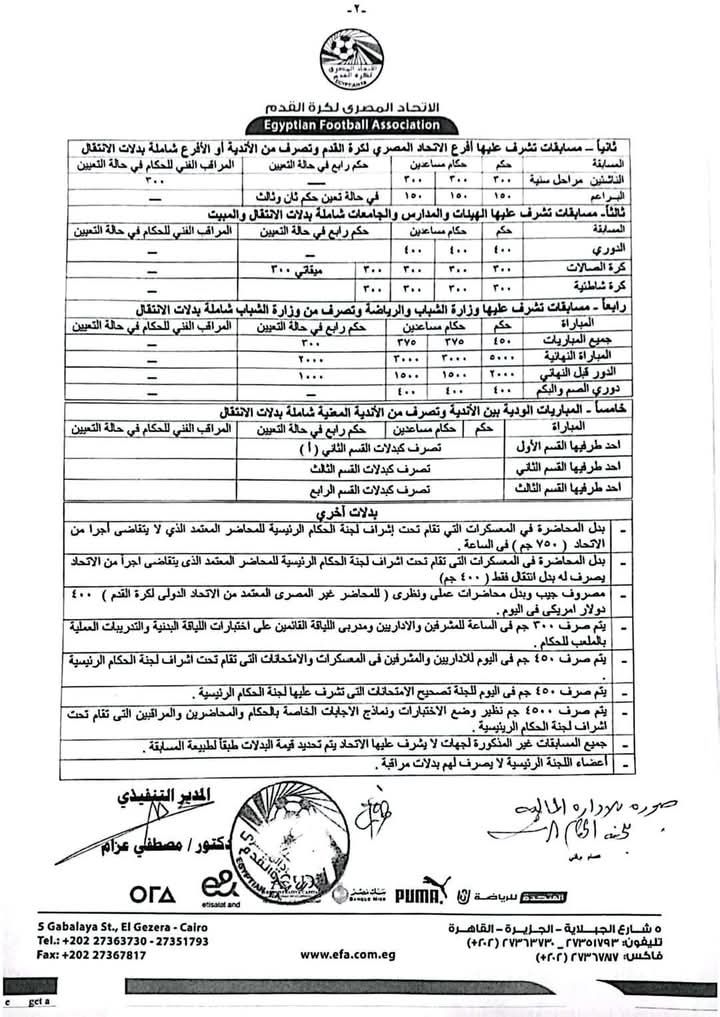 -٢-
الاتحاد المصرى لكرة القدم
EGYPTIAN FA
الاتحاد المصرى لكرة القدم
Egyptian Football Association
ثانياً – مسابقات تشرف عليها أفرع الاتحاد المصري لكرة القدم وتصرف من الأندية أو الأفرع شاملة بدلات الانتقال
المسابقة حكم حكام مساعدين حكم رابع في حالة التعيين المراقب الفني للحكام في حالة التعيين
الناشئين مراحل سنية ٣٠٠ ٣٠٠ ٣٠٠ — ٣٠٠
البراعم ١٥٠ ١٥٠ ١٥٠ في حالة تعين حكم ثان وثالث —
ثالثاً – مسابقات تشرف عليها الهيئات والمدارس والجامعات شاملة بدلات الانتقال والمبيت
المسابقة حكم حكام مساعدين حكم رابع في حالة التعيين المراقب الفني للحكام في حالة التعيين
الدوري ٤٠٠ ٤٠٠ ٤٠٠ — —
كرة الصالات ٣٠٠ ٣٠٠ ٣٠٠ ٣٠٠ ميقاتي ٣٠٠ —
كرة شاطئية ٣٠٠ ٣٠٠ ٣٠٠ ٣٠٠ —
رابعاً – مسابقات تشرف عليها وزارة الشباب والرياضة وتصرف من وزارة الشباب شاملة بدلات الانتقال
المباراة حكم حكام مساعدين حكم رابع في حالة التعيين المراقب الفني للحكام في حالة التعيين
جميع المباريات ٤٥٠ ٣٧٥ ٣٧٥ ٣٠٠ —
المباراة النهائية ٥٠٠٠ ٣٠٠٠ ٣٠٠٠ ٢٠٠٠ —
الدور قبل النهائي ٢٠٠٠ ١٥٠٠ ١٥٠٠ ١٠٠٠ —
دوري الصم والبكم ٤٠٠ ٤٠٠ ٤٠٠ — —
خامساً – المباريات الودية بين الأندية وتصرف من الأندية المعنية شاملة بدلات الانتقال
المباراة حكم حكام مساعدين حكم رابع في حالة التعيين المراقب الفني للحكام في حالة التعيين
احد طرفيها القسم الأول تصرف كبدلات القسم الثاني ( أ )
احد طرفيها القسم الثاني تصرف كبدلات القسم الثالث
احد طرفيها القسم الثالث تصرف كبدلات القسم الرابع
بدلات أخري
- بدل المحاضرة في المعسكرات التي تقام تحت إشراف لجنة الحكام الرئيسية للمحاضر المعتمد الذي لا يتقاضى أجرا من
الاتحاد ( ٧٥٠ جم ) فى الساعة .
- بدل المحاضرة فى المعسكرات التى تقام تحت اشراف لجنة الحكام الرئيسية للمحاضر المعتمد الذى يتقاضى اجراً من الاتحاد
يصرف له بدل انتقال فقط ( ٤٠٠ جم)
- مصروف جيب وبدل محاضرات عملى ونظرى ( للمحاضر غير المصرى المعتمد من الاتحاد الدولى لكرة القدم ) ٤٠٠
دولار امريكى فى اليوم .
- يتم صرف ٣٠٠ جم فى الساعة للمشرفين والاداريين ومدربى اللياقة القائمين على اختبارات اللياقة البدنية والتدريبات العملية
بالملعب للحكام .
- يتم صرف ٤٥٠ جم فى اليوم للاداريين والمشرفين فى المعسكرات والامتحانات التى تقام تحت اشراف لجنة الحكام الرئيسية
.
- يتم صرف ٤٥٠ جم فى اليوم للجنة تصحيح الامتحانات التى تشرف عليها لجنة الحكام الرئيسية .
- يتم صرف ٤٥٠٠ جم نظير وضع الاختبارات ونماذج الاجابات الخاصة بالحكام والمحاضرين والمراقبين التى تقام تحت
اشراف لجنة الحكام الرئيسية .
- جميع المسابقات غير المذكورة لجهات لا يشرف عليها الاتحاد يتم تحديد قيمة البدلات طبقاً لطبيعة المسابقة .
- أعضاء اللجنة الرئيسية لا يصرف لهم بدلات مراقبة .
المدير التنفيذي
دكتور / مصطفي عزام
صوره للاداره المالية
لجنة الحكام
ORA
etisalat and
بنك نصر
PUMA
المتحدة للرياضة
5 Gabalaya St., El Gezera - Cairo
Tel.: +202 27363730 - 27351793
Fax: +202 27367817
www.efa.com.eg
٥ شارع الجبلاية - الجزيرة - القاهرة
تليفون: ٢٧٣٥١٧٩٣ - ٢٧٣٦٣٧٣٠ (٢٠٢+)
فاكس: ٢٧٣٦٧٨١٧ (٢٠٢+)
get a